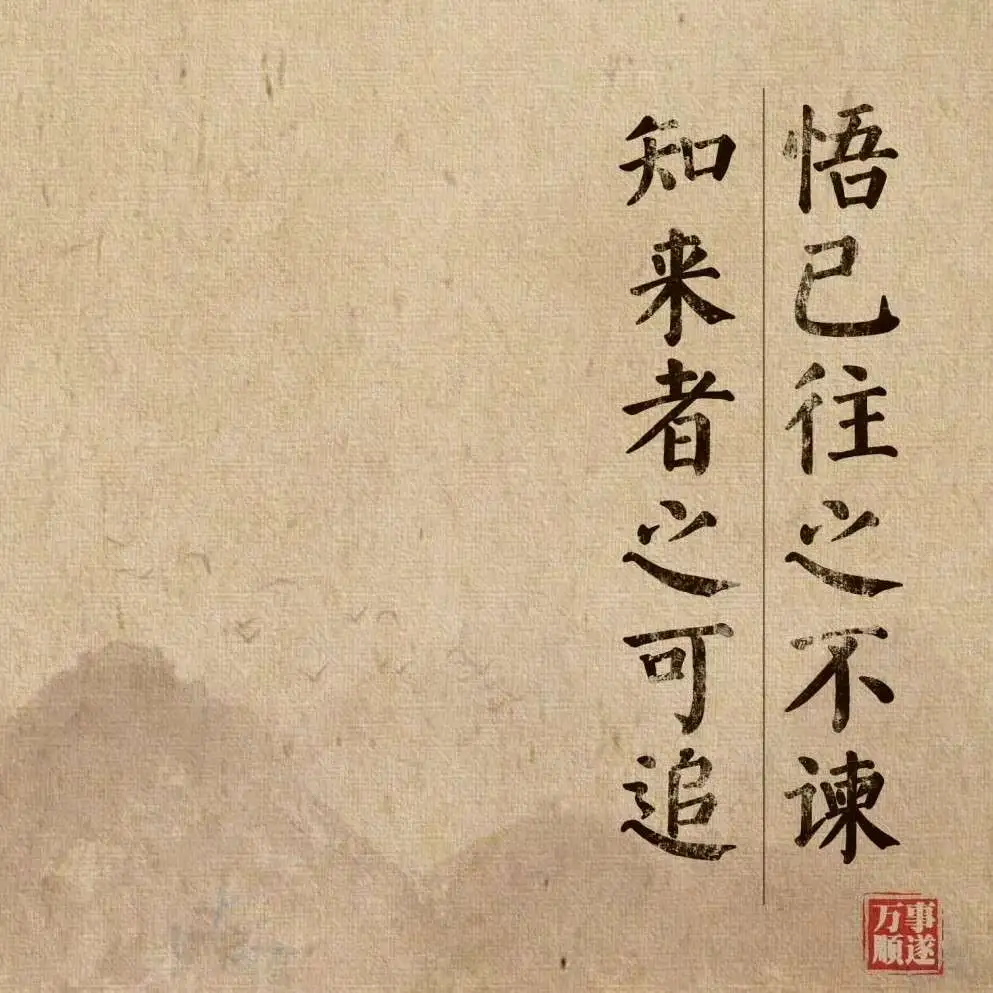 悟已往之不谏
知来者之可追
万事
顺遂